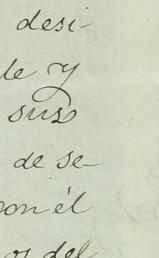 desi-
le y
sus
de se-
con él
os del